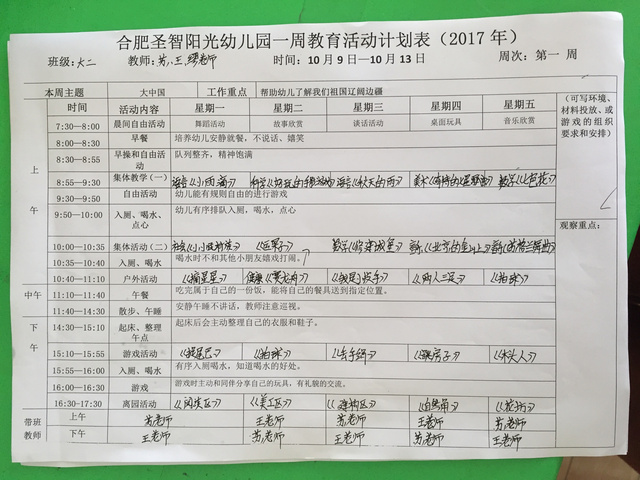 合肥圣智阳光幼儿园一周教育活动计划表（2017 年）
班级：大二 教师：芳、王、缪老师 时间：10 月 9 日—10 月 13 日 周次：第一 周
本周主题 大中国 工作重点 帮助幼儿了解我们祖国辽阔边疆
时间 活动内容 星期一 星期二 星期三 星期四 星期五 （可写环境、材料投放、或游戏的组织要求和安排）
7:30—8:00 晨间自由活动 舞蹈活动 故事欣赏 谈话活动 桌面玩具 音乐欣赏
上午
8:00—8:30 早餐 培养幼儿安静就餐，不说话、嬉笑
8:30—8:55 早操和自由活动 队列整齐，精神饱满
8:55—9:30 集体教学（一） 语言《小雨滴》 科学 语言《秋天的雨》 美术 数学
9:30—9:50 自由活动 幼儿能有规则自由的进行游戏
9:50—10:00 入厕、喝水、点心 幼儿有序排队入厕，喝水，点心
观察重点：
10:00—10:35 集体活动（二） 社会 数学 音乐《北京的金山上》 音乐
10:35—10:40 入厕、喝水 喝水时不和其他小朋友嬉戏打闹。
10:40—11:10 户外活动 《摘星星》 健康 《两人三足》 《拍球》
中午 11:10—11:40 午餐 吃完属于自己的一份饭，能将自己的餐具送到指定位置。
11:40—14:30 散步、午睡 安静午睡不讲话，教师注意巡视。
下午 14:30—15:10 起床、整理午点 起床后会主动整理自己的衣服和鞋子。
15:10—15:55 游戏活动 《揪尾巴》 《拍球》 《丢手绢》 《跳房子》 《木头人》
15:55—16:00 入厕、喝水 有序入厕喝水，知道喝水的好处。
16:00—16:30 游戏 游戏时主动和同伴分享自己的玩具，有礼貌的交流。
16:30-17:30 离园活动 《阅读区》 《美工区》 《建构区》 《自然角》
带班教师 上午 芳老师 王老师 芳老师 王老师 芳老师
下午 王老师 芳老师 王老师 芳老师 王老师